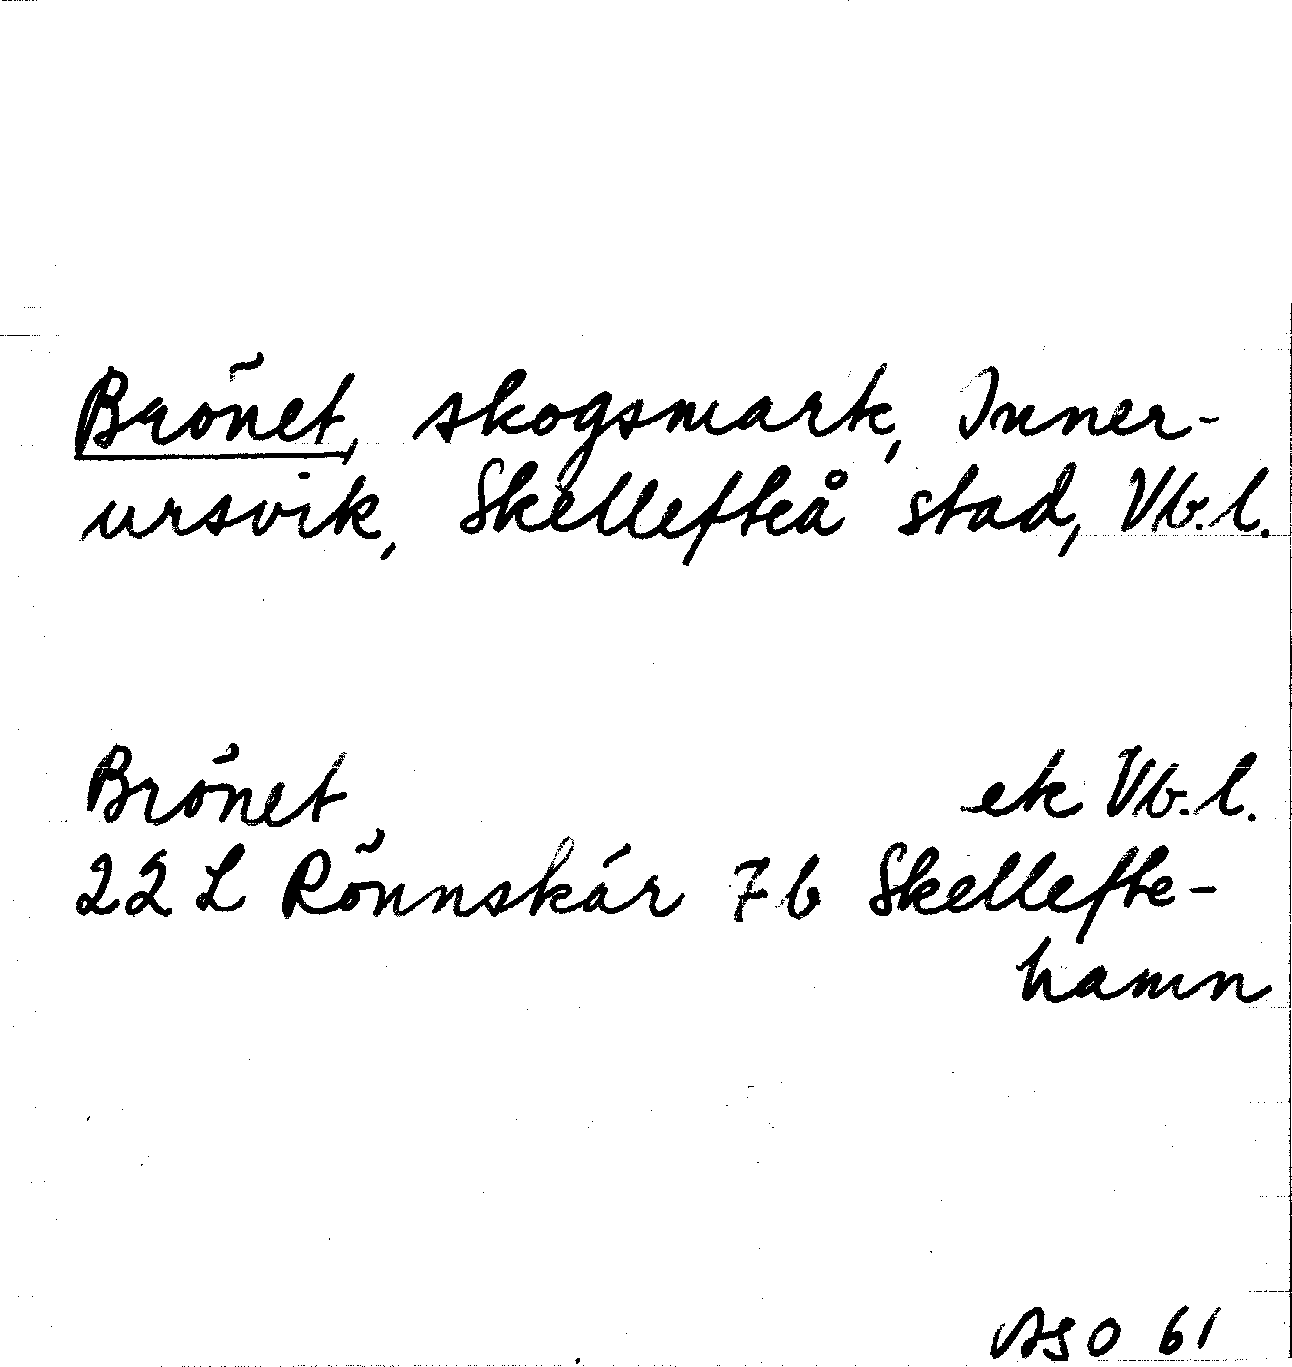 Brönet, skogsmark, Inner-
ursvik, Skellefteå stad, Vb.l.
Brönet ek Vb.l.
22 L Rönnskär 7b Skellefte-
hamn
ASO 61